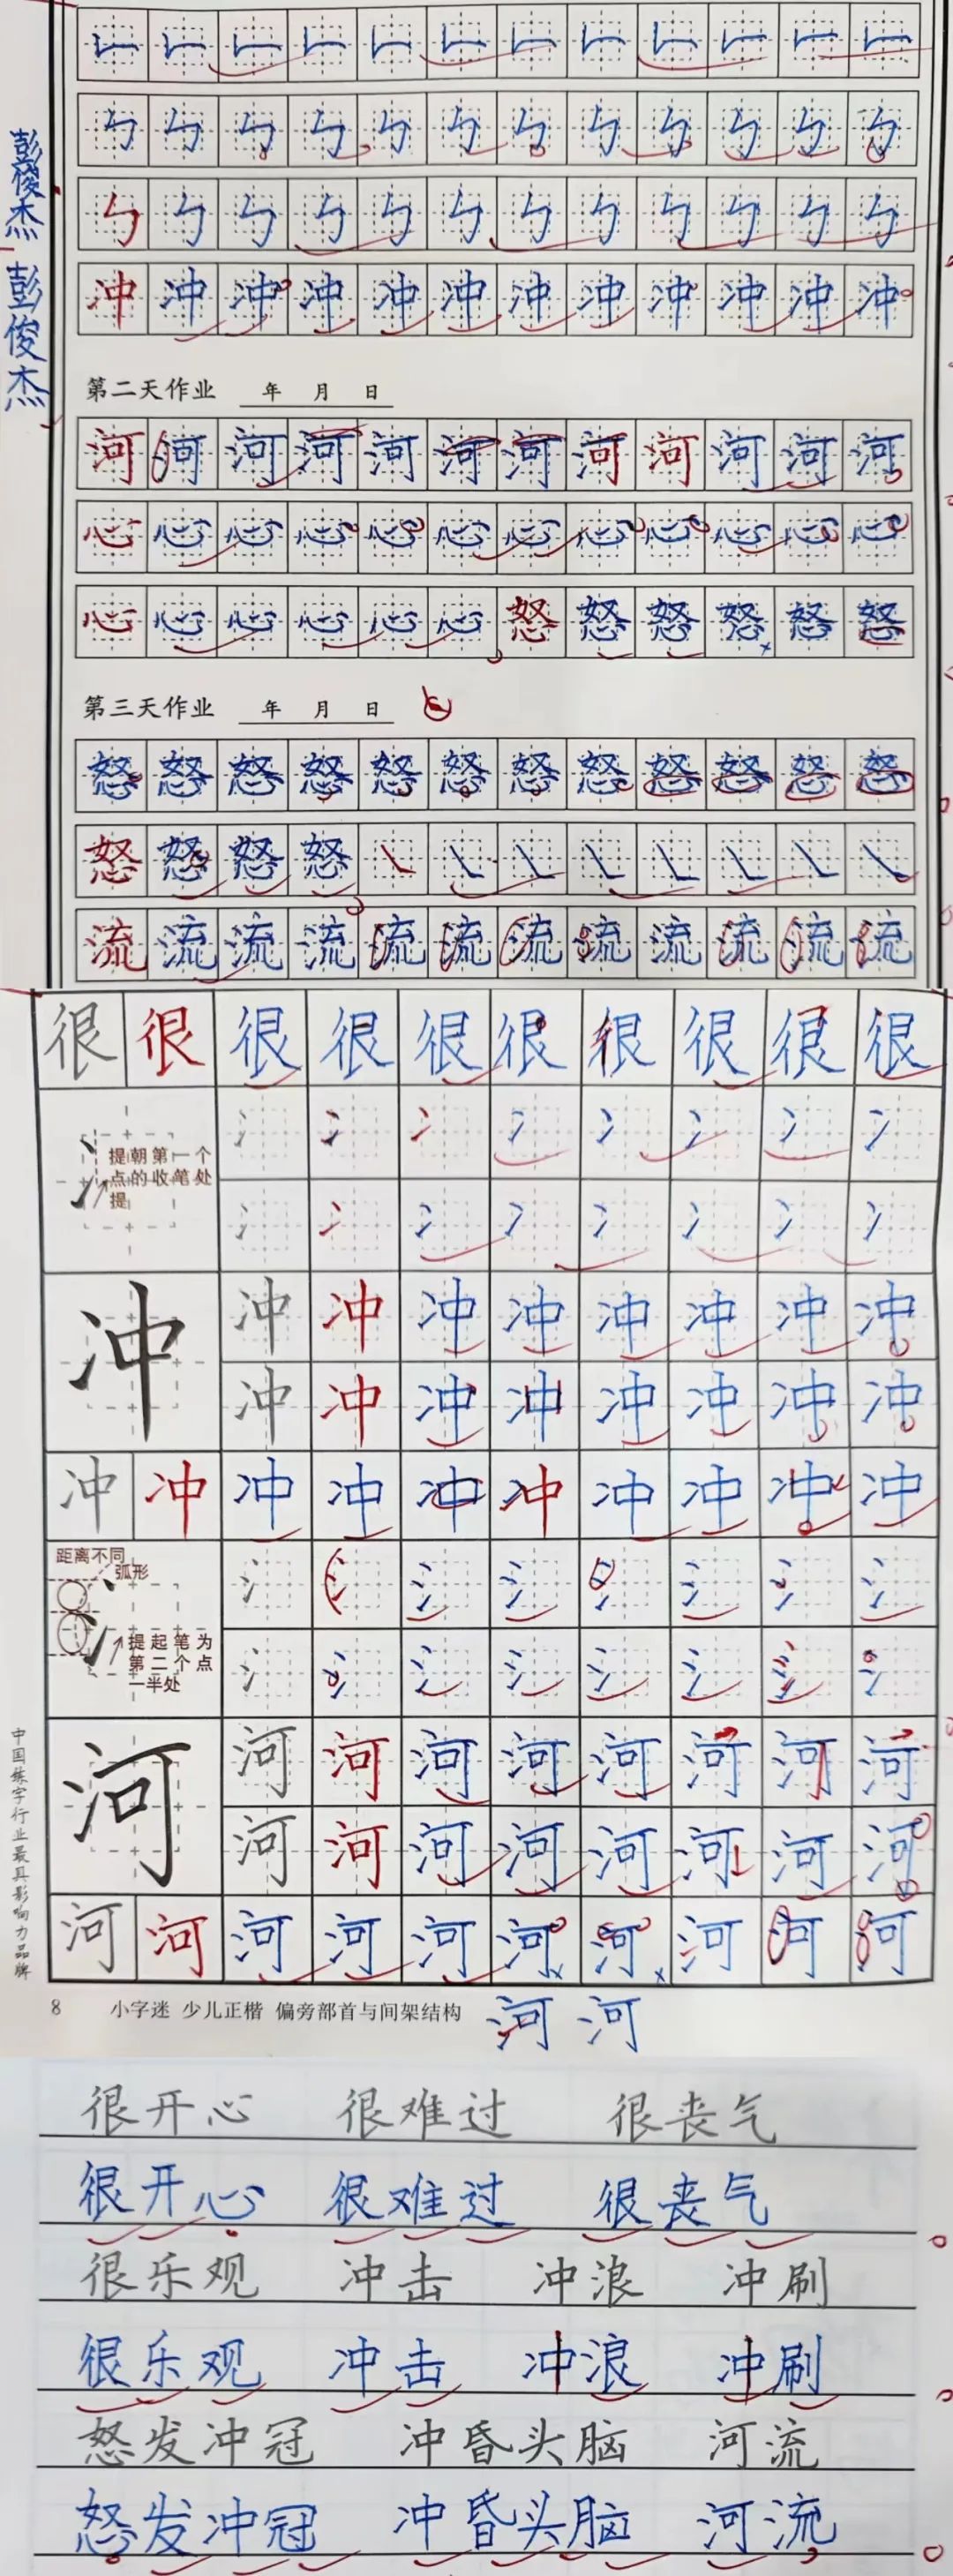 彭俊杰 彭俊杰
冲 冲 冲 冲 冲 冲 冲 冲 冲 冲 冲 冲
第二天作业 年 月 日
河 河 河 河 河 河 河 河 河 河 河 河
心 心 心 心 心 心 心 心 心 心 心 心
心 心 心 心 心 心 怒 怒 怒 怒 怒 怒
第三天作业 年 月 日
怒 怒 怒 怒 怒 怒 怒 怒 怒 怒 怒 怒
怒 怒 怒 怒
流 流 流 流 流 流 流 流 流 流 流 流
很 很 很 很 很 很 很 很 很 很
冫 冫 冫 冫 冫 冫 冫 冫
提朝第一个
点的收笔处
提
冫 冫 冫 冫 冫 冫 冫 冫
冲 冲 冲 冲 冲 冲 冲 冲 冲
冲 冲 冲 冲 冲 冲 冲 冲
冲 冲 冲 冲 冲 冲 冲 冲 冲 冲
距离不同
弧形
氵 氵 氵 氵 氵 氵 氵 氵
提起笔为
第二个点
一半处
氵 氵 氵 氵 氵 氵 氵 氵
河 河 河 河 河 河 河 河 河
河 河 河 河 河 河 河 河
河 河 河 河 河 河 河 河 河 河
中国练字行业最具影响力品牌
8 小字迷 少儿正楷 偏旁部首与间架结构
河 河
很开心 很难过 很丧气
很开心 很难过 很丧气
很乐观 冲击 冲浪 冲刷
很乐观 冲击 冲浪 冲刷
怒发冲冠 冲昏头脑 河流
怒发冲冠 冲昏头脑 河流